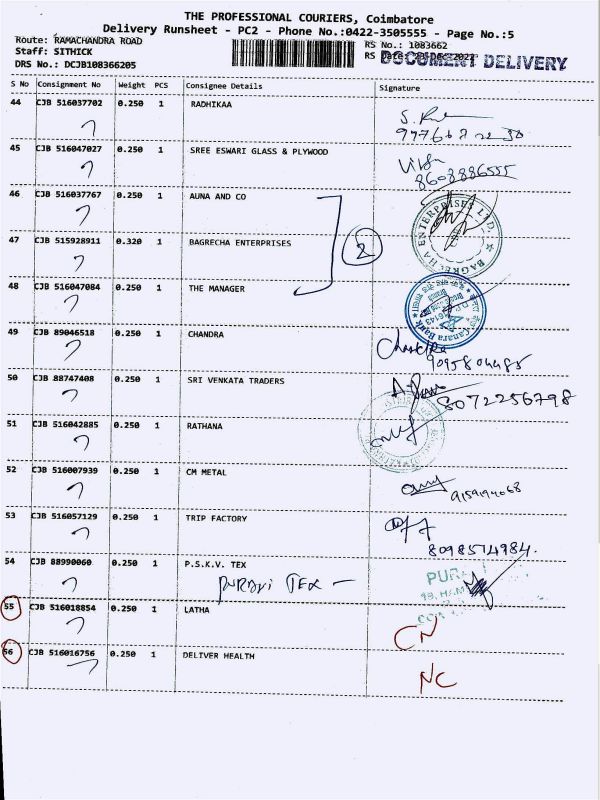 THE PROFESSIONAL COURIERS, Coimbatore
Delivery Runsheet - PC2 - Phone No.:0422-3505555 - Page No.:5
Route: RAMACHANDRA ROAD
RS No.: 1083662
Staff: SITHICK
RS Date: 23-Dec-2022
DOCUMENT DELIVERY
DRS No.: DCJB108366205
S No Consignment No Weight PCS Consignee Details Signature
44 CJB 516037702 0.250 1 RADHIKAA
45 CJB 516047027 0.250 1 SREE ESWARI GLASS & PLYWOOD
8608886555
46 CJB 516037767 0.250 1 AUNA AND CO
2
47 CJB 515928911 0.320 1 BAGRECHA ENTERPRISES
BAGRECHA ENTERPRISES LTD.
48 CJB 516047084 0.250 1 THE MANAGER
Canara Bank
49 CJB 89046518 0.250 1 CHANDRA
Chandra
9095804485
50 CJB 88747408 0.250 1 SRI VENKATA TRADERS
8072256798
51 CJB 516042885 0.250 1 RATHANA
52 CJB 516007939 0.250 1 CM METAL
9159194068
53 CJB 516057129 0.250 1 TRIP FACTORY
8098574984.
54 CJB 88990060 0.250 1 P.S.K.V. TEX
TEX -
55 CJB 516018854 0.250 1 LATHA
CN
56 CJB 516016756 0.250 1 DELIVER HEALTH
NC